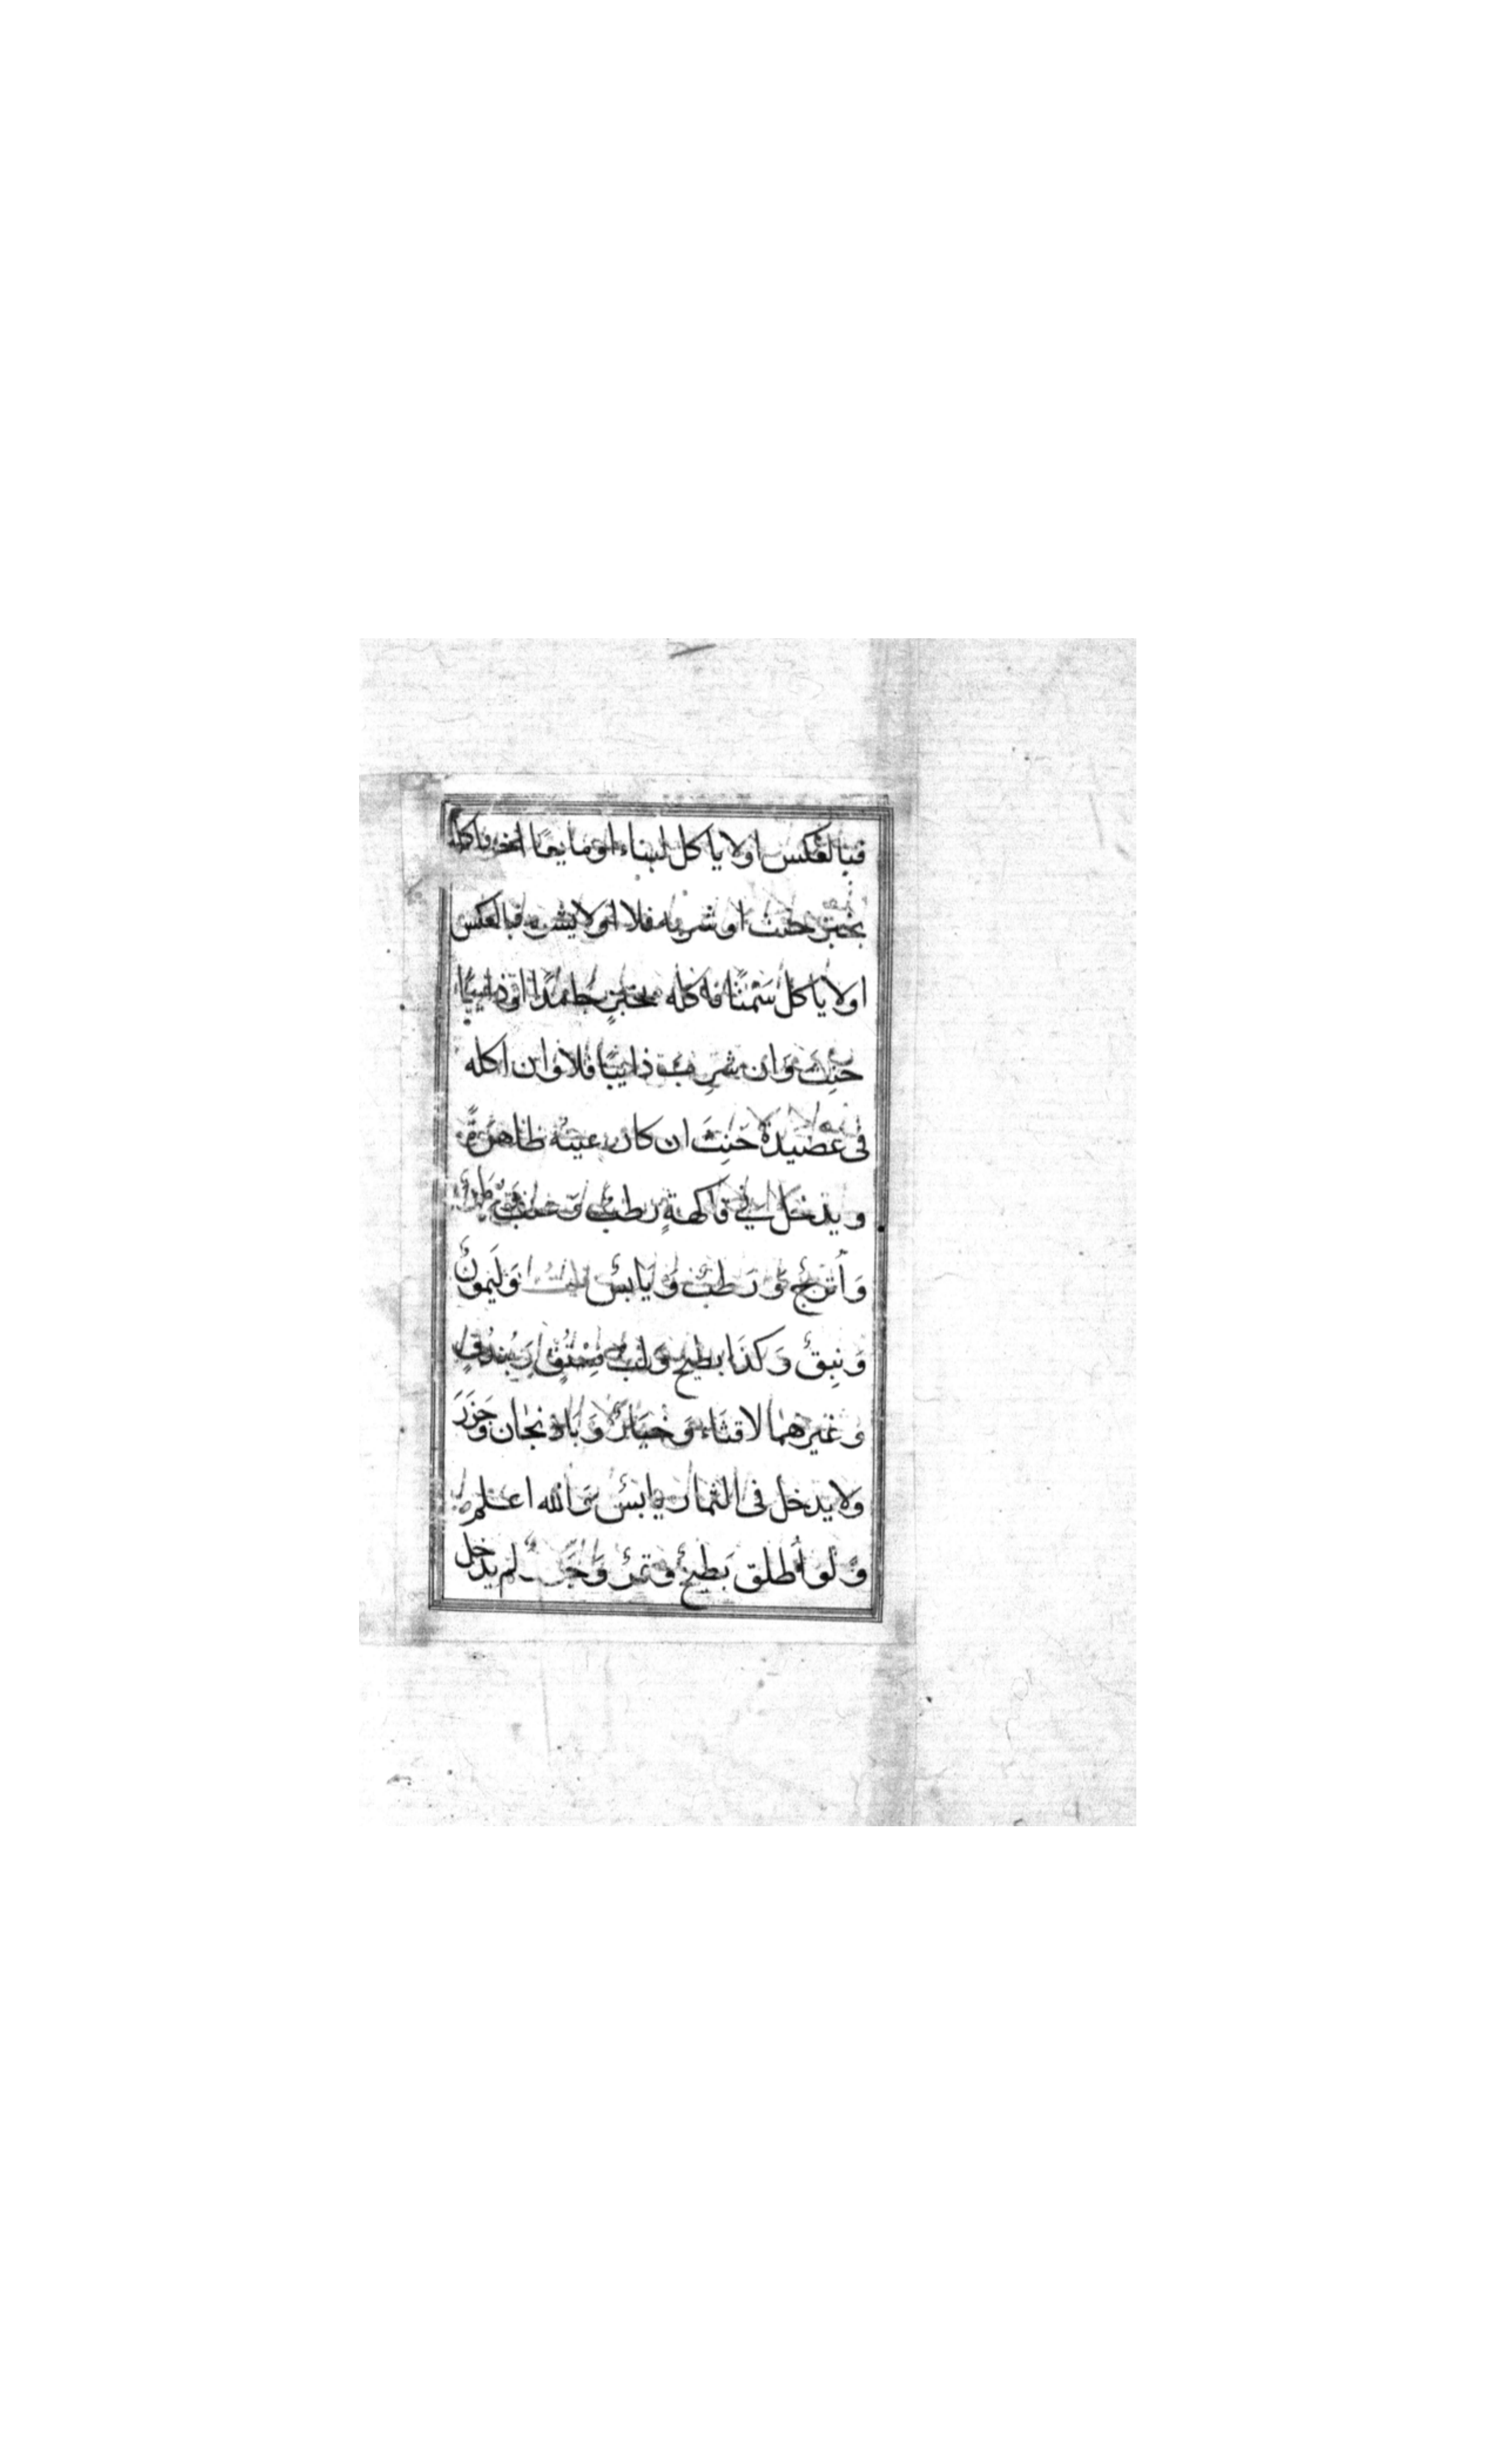 فبالعكس اولا ياكل لبنا او مايعا اخر فاكله
بخبز حنث او شربه فلا اولا يشربه فبالعكس
اولا ياكل سَمْنًا فاكله بخبزٍ جامدًا او ذايبًا
حنِثَ وَان شرِبَ ذايبًا فلا وان اكله
فى عصَيدَة حَنِثَ ان كان عينه ظاهرةً
ويدخل في فاكهةٍ رطبٌ وعنبٌ
وَأترجٌ وَرَطبٌ وَيابسٌ وَلَيمونٌ
وَنبِقٌ وَكذَا بطيخ وَلبُّ فسْتُقٍ وَبُندُقٍ
وغيرهما لا قثاء وَخيارٌ وَباذنجان وجَزَرَ
ولا يدخل فى الثمار يابسٌ وَالله اعلم
وَلو أطلق بَطيخٌ وتمرٌ وَجَوز لم يدخل